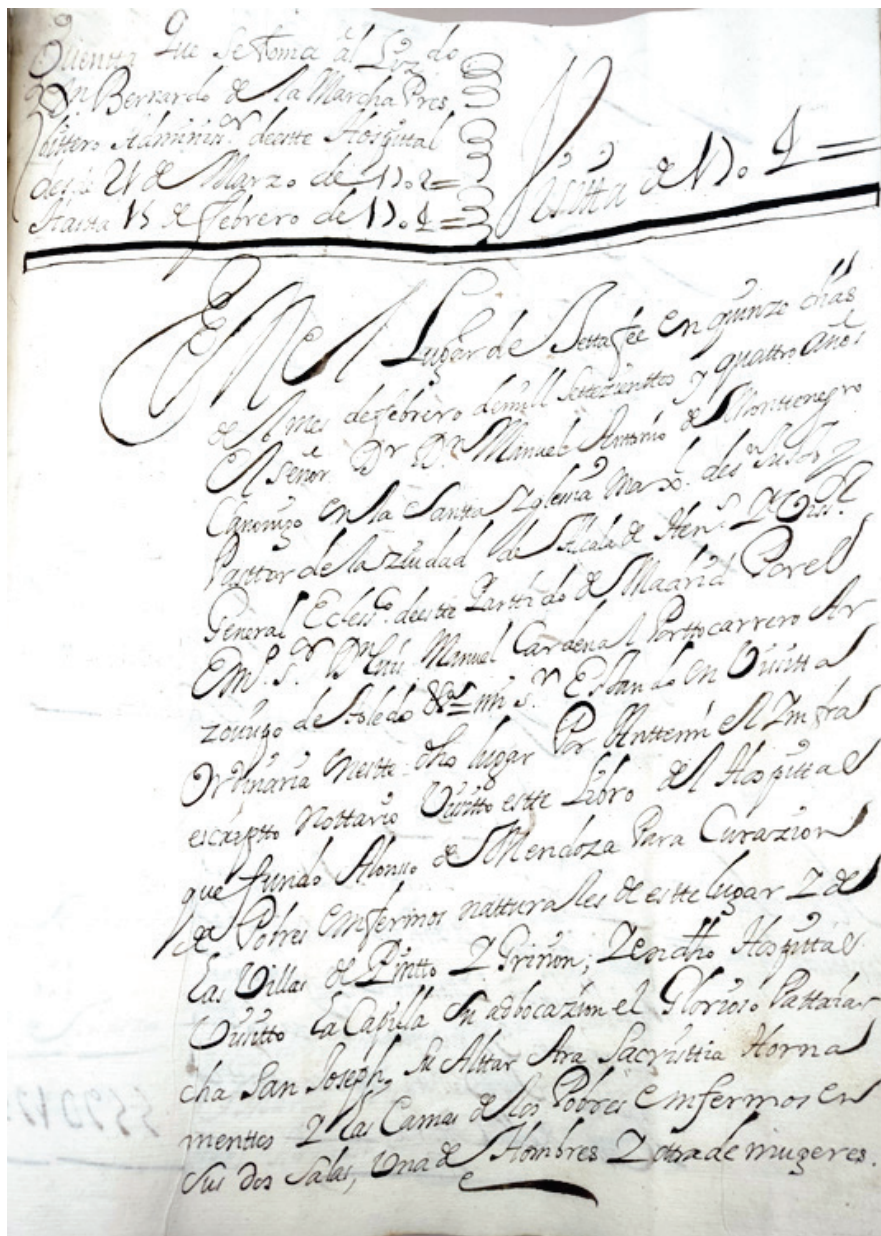 Quentta que se toma al Lizdo
Dn Bernardo de la Marcha Pres
bittero Adminisor deeste Hospittal
desde 21 de Marzo de 1702=
Hasta 15 de febrero de 1704=
Visitta de 1704=
En el Lugar de Xettafee en quinze dias
del mes de febrero demill settezienttos y quattro años
el señor Dr Dn Manuel Antonio de Monttenegro
Canonigo en la Santta Iglesia Maxl. de sn Justo y
Pasttor de la ziudad de Alcala de Hens. Y Vissr.
General Eclesso. deeste Parttido de Madrid Por el
Emo. sr. Dn Luis Manuel Cardenal Porttocarrero Ar
zouispo de Toledo &a= mi sr. Esttando en Uisitta
Ordinaria enestte dho lugar Por Antte mi el Infra
escriptto Nottario Uisitto estte Libro del Hospittal
que fundo Alonso de Mendoza Para Curazion
de Pobres emfermos natturales de estte lugar Y de
las Villas de Pintto Y Griñon; Y en dho Hospittal
Uisitto la Capilla su adbocazion el Glorioso Pattriar
cha San Joseph, su Alttar Ara Sacristtia Horna
menttos Y las Camas de los Pobres emfermos en
sus dos salas, Una de Hombres Y otra de mugeres.